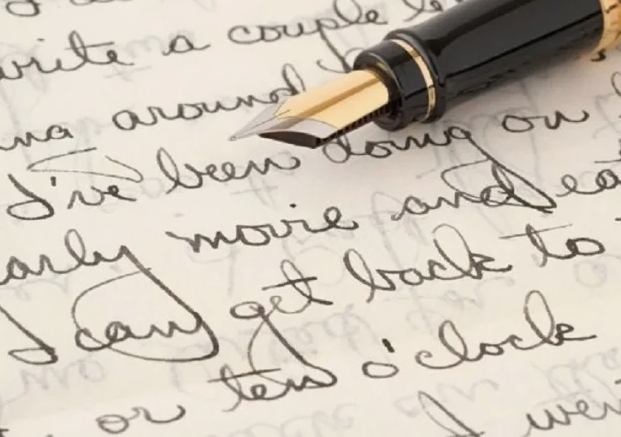 write a couple
around
I've been doing on
early movie and
I can get back to
or ten o'clock
I